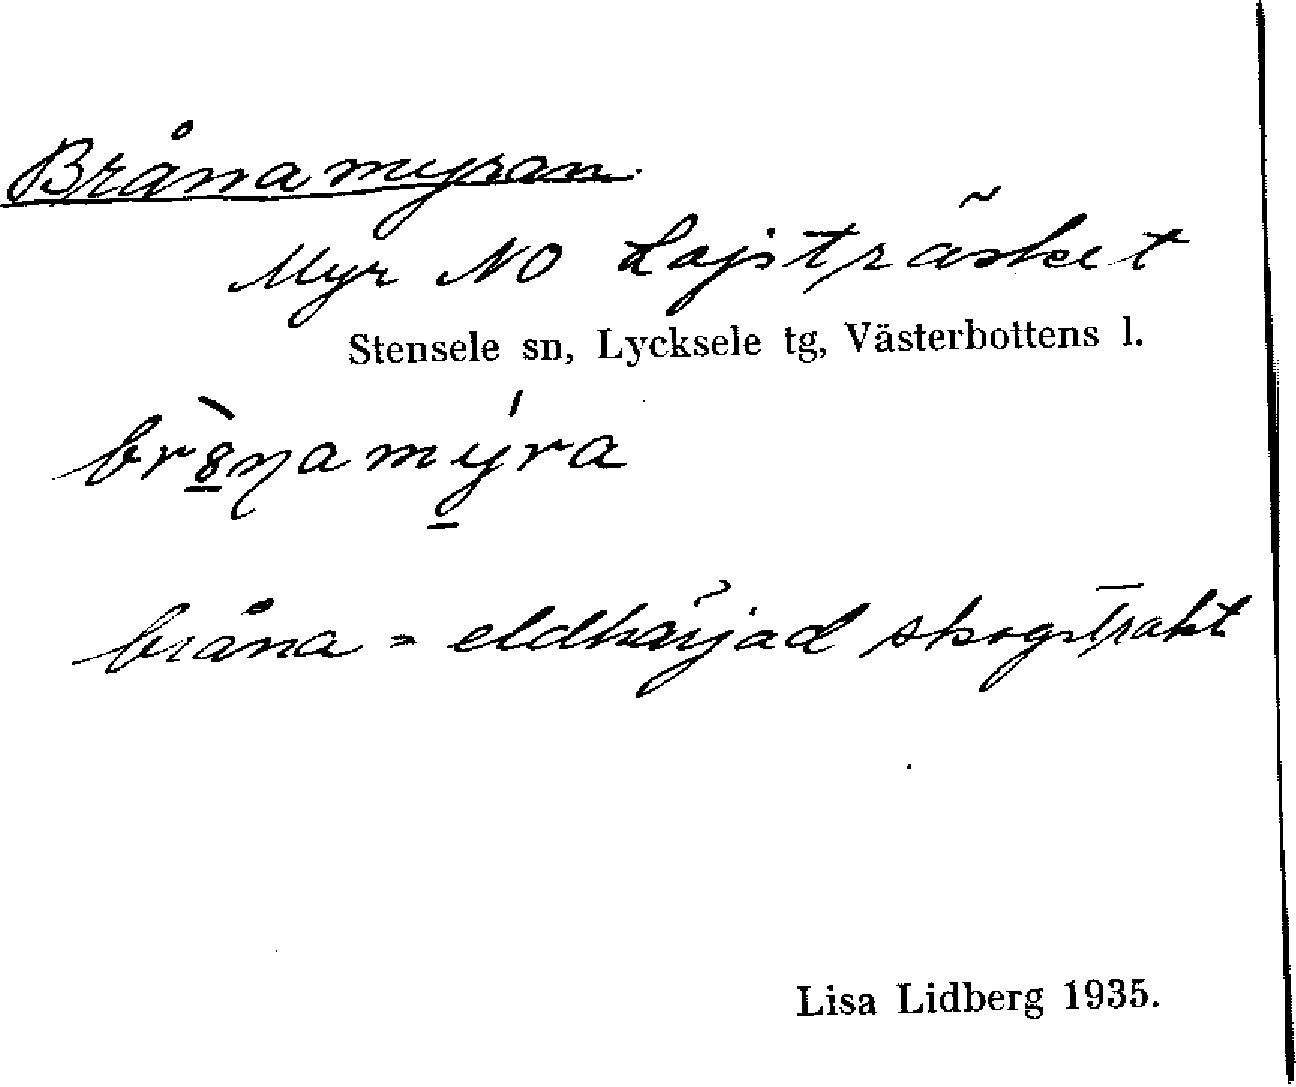 Brånamyran
Myr NO Lajsträsket
Stensele sn, Lycksele tg, Västerbottens l.
bråna = eldhärjad skogstrakt
Lisa Lidberg 1935.